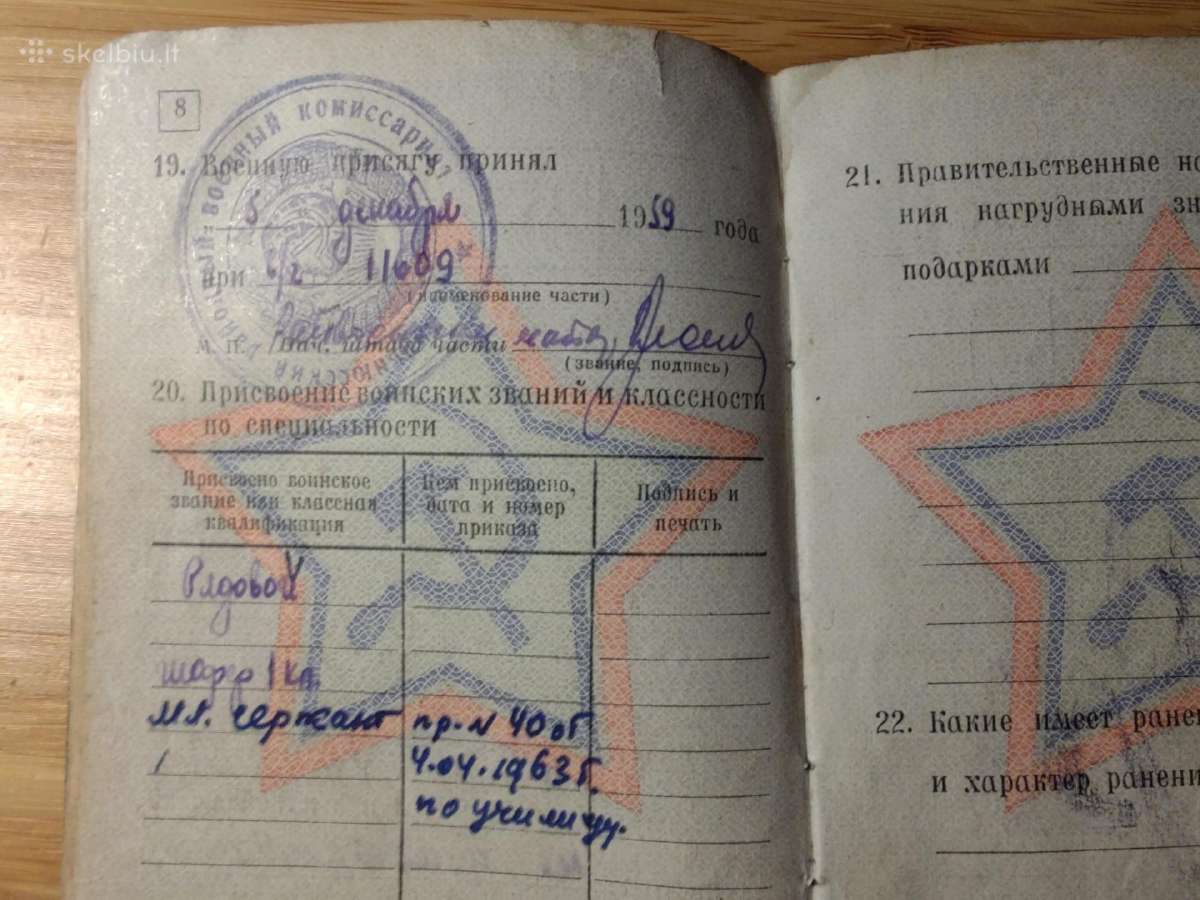 skelbiu.lt
8
ВОЕННЫЙ КОМИССАРИАТ
19. Военную присягу принял
5 декабря 1959 года
при в/ч 11609
(наименование части)
М. П. Нач. штаба части
(звание, подпись)
20. Присвоение воинских званий и классности
по специальности
Присвоено воинское звание или классная квалификация
Кем присвоено, дата и номер приказа
Подпись и печать
Рядовой
шофер 1 кл.
Мл. сержант пр. N 40 от
4.04.1963г.
по училищу.
21. Правительственные
ния нагрудными
подарками
22. Какие имеет
и характер